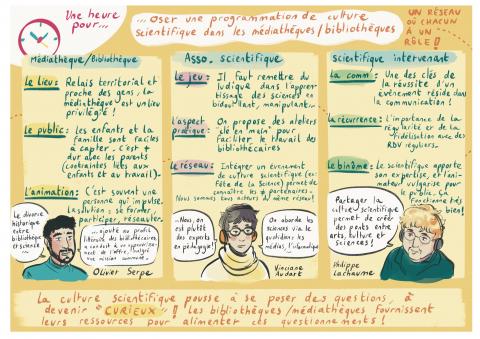 Une heure
pour...
...Oser une programmation de culture
scientifique dans les médiathèques/bibliothèques
UN RÉSEAU
OÙ CHACUN
A UN
RÔLE !
Médiathèque/Bibliothèque
Le lieu : Relais territorial et
proche des gens, la
médiathèque est un lieu
privilégié !
Le public : les enfants et la
famille sont faciles
à capter. C'est +
dur avec les parents
(contraintes liées aux
enfants et au travail).
L'animation : C'est souvent une
personne qui impulse.
La solution : se former,
participer, réseauter.
Le divorce
historique
entre
bibliothèque
et science
...
... ajouté au profil
littéraire des bibliothécaires,
a conduit à un appauvrissement
de l'offre, malgré
une mission commune...
Olivier Serpe
Asso. scientifique
Le jeu : Il faut remettre du
ludique dans l'appren-
tissage des sciences en
bidouillant, manipulant...
L'aspect
pratique : On propose des ateliers
"clé en main" pour
faciliter le travail des
bibliothécaires
Le réseau : Intégrer un événement
de culture scientifique (ex:
Fête de la Science) permet de
connaître les partenaires.
Nous sommes tous acteurs du même réseau !
...Nous, on
est plutôt
des experts
en pédagogie !
On aborde les
sciences via le
quotidien: les
médias, l'informatique
Vinciane
Audart
Scientifique intervenant
La comm : Une des clés de
la réussite d'un
événement réside dans
la communication !
La récurrence : L'importance de la
régularité et de la
fidélisation avec des
RDV réguliers.
Le binôme : Le scientifique apporte
son expertise, et l'ani-
mateur vulgarise pour
le public. Ça
fonctionne très
bien !
Partager la
culture scientifique
permet de créer
des ponts entre
arts, culture et
sciences !
Philippe
Lachaume
La culture scientifique pousse à se poser des questions, à
devenir "CURIEUX" !! Les bibliothèques/médiathèques fournissent
leurs ressources pour alimenter ces questionnements !